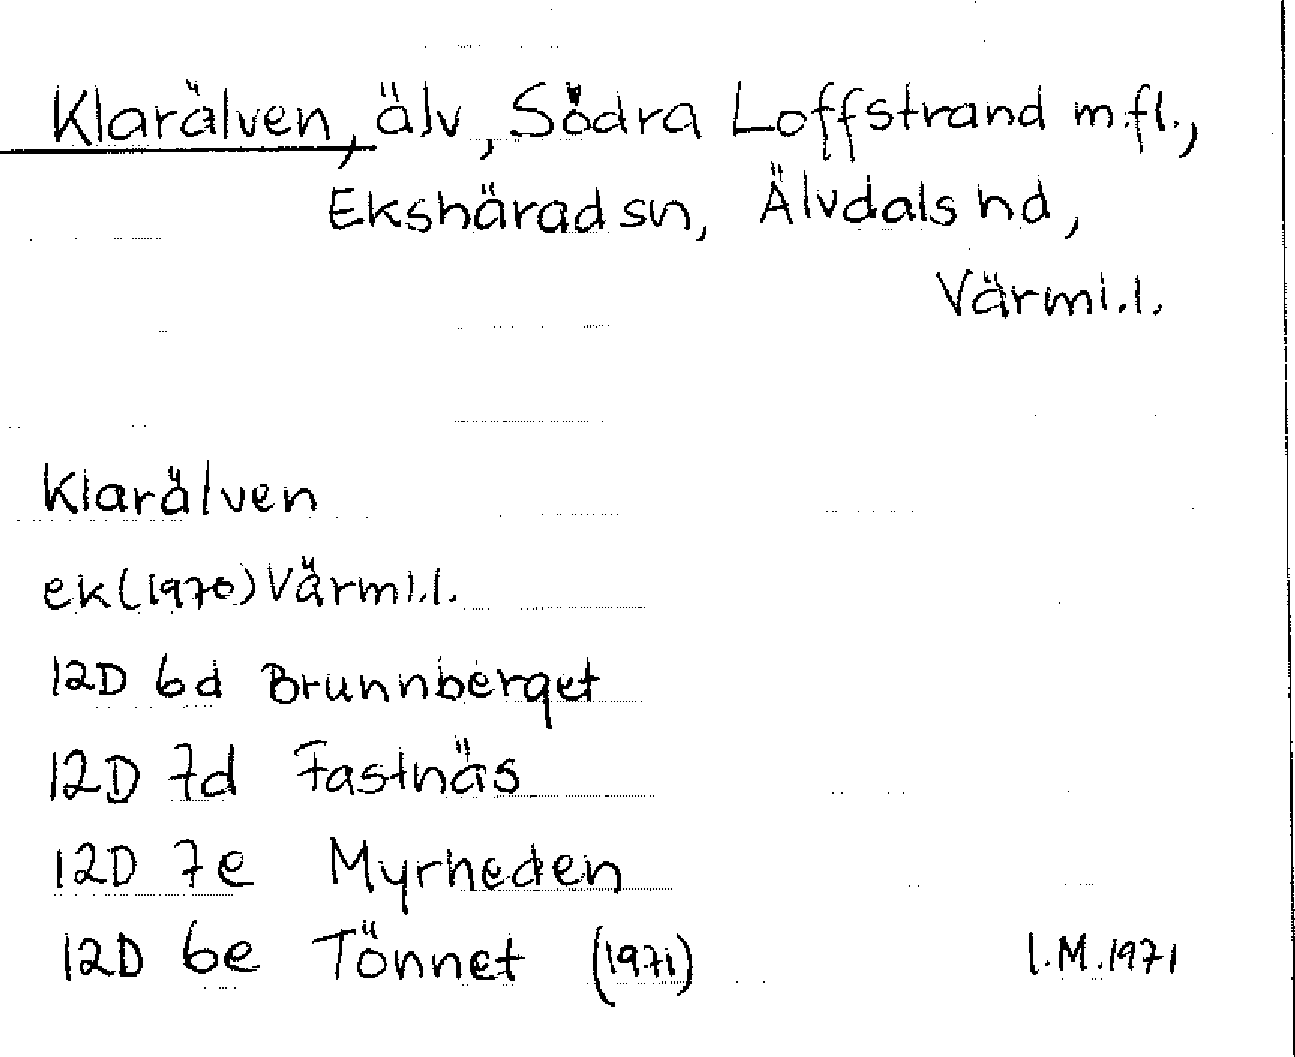 Klarälven, älv, Södra Loffstrand m.fl.,
Ekshärad sn, Älvdals hd,
Värml.l.
Klarälven
ek(1970) Värml.l.
12D 6d Brunnberget
12D 7d Fastnäs
12D 7e Myrheden
12D 6e Tönnet (1971) I.M.1971